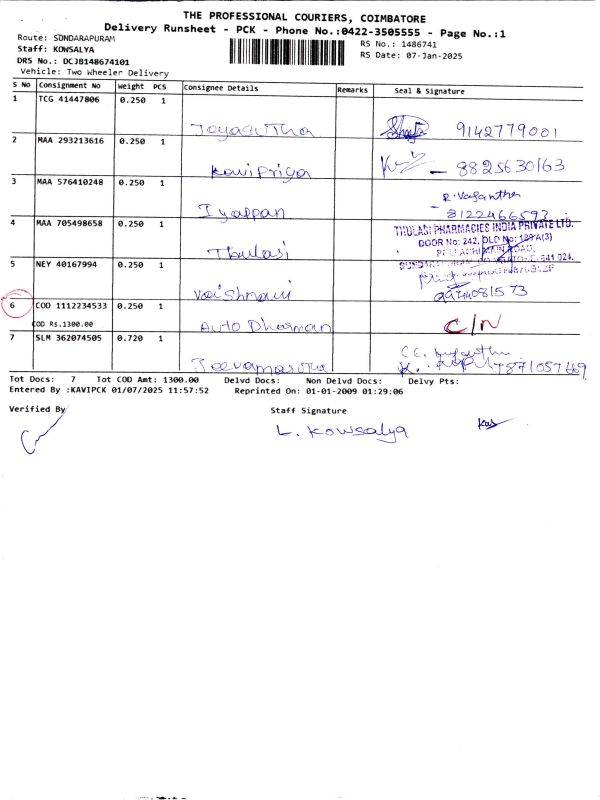 THE PROFESSIONAL COURIERS, COIMBATORE
Delivery Runsheet - PCK - Phone No.:0422-3505555 - Page No.:1
Route: SUNDARAPURAM
Staff: KOWSALYA
DRS No.: DCJB148674101
Vehicle: Two Wheeler Delivery
RS No.: 1486741
RS Date: 07-Jan-2025
S No Consignment No Weight PCS Consignee Details Remarks Seal & Signature
1 TCG 41447806 0.250 1
Jeyasutha 9142779001
2 MAA 293213616 0.250 1
Kavipriya - 8825630163
3 MAA 576410248 0.250 1
R. Vasantha
Iyappan - 8122466593
4 MAA 705498658 0.250 1
THULASI PHARMACIES INDIA PRIVATE LTD.
DOOR No: 242, OLD No: 189A(3)
Thulasi
5 NEY 40167994 0.250 1
Vaishnavi 9974081573
6 COD 1112234533 0.250 1
COD Rs.1300.00
Auto Dharman C/N
7 SLM 362074505 0.720 1
7871057669
Tot Docs: 7 Tot COD Amt: 1300.00 Delvd Docs: Non Delvd Docs: Delvy Pts:
Entered By :KAVIPCK 01/07/2025 11:57:52 Reprinted On: 01-01-2009 01:29:06
Verified By
Staff Signature
L. Kowsalya